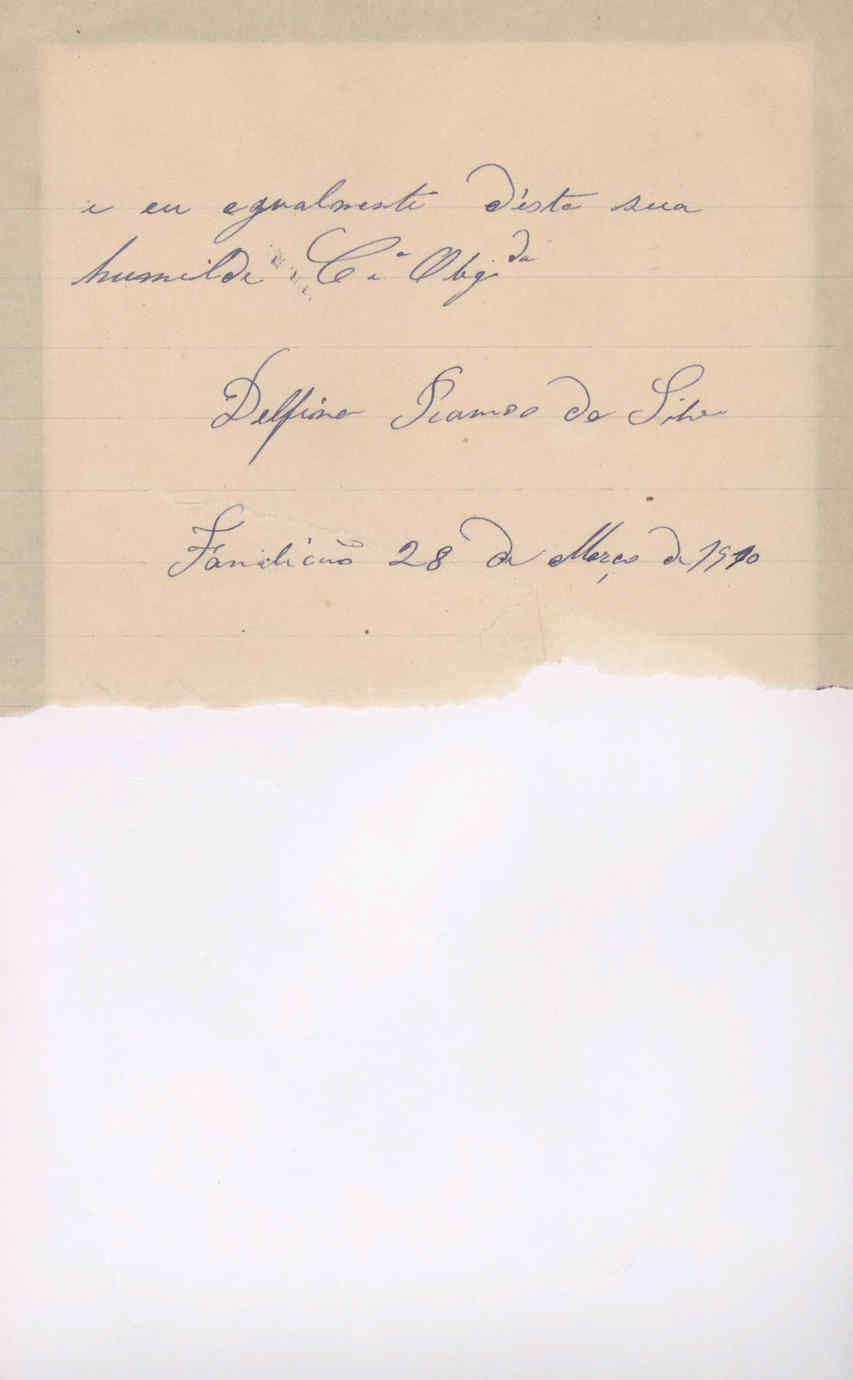 e eu egualmente d'ésta sua
humilde C.ª Obg.da
Delfina Ramos da Silva
Famalicão 28 de Março de 1910